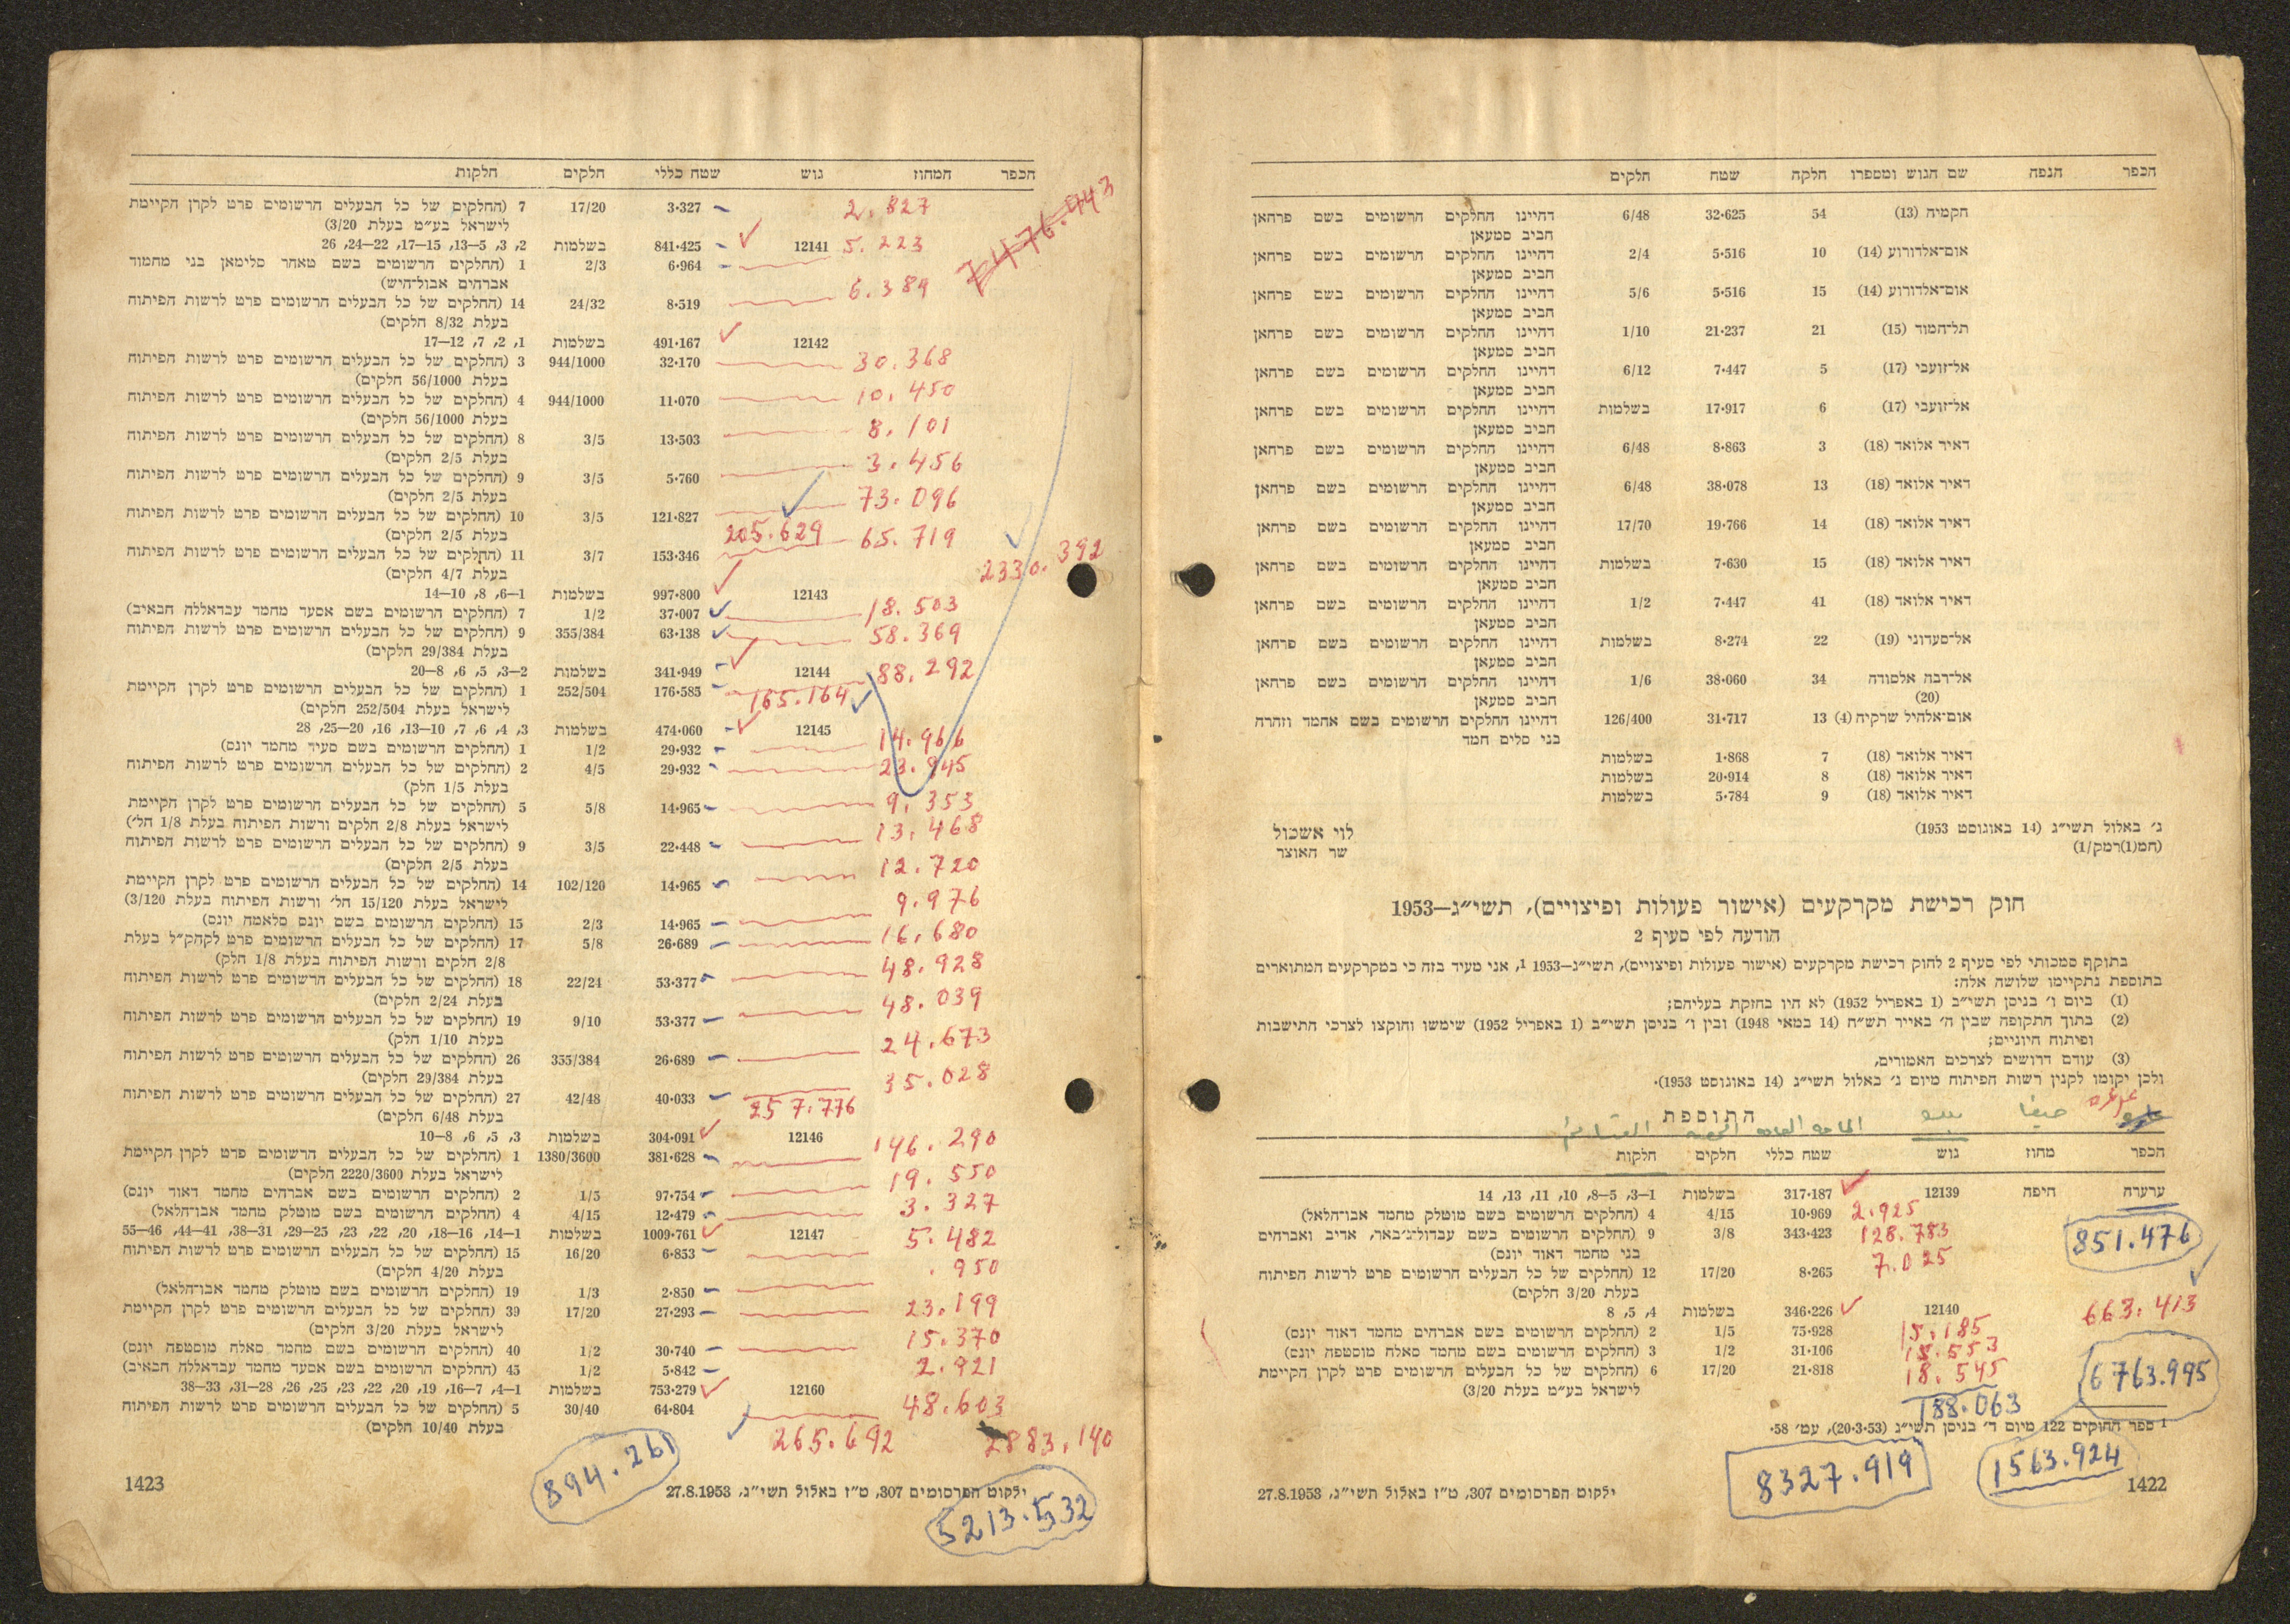 הכפר הנפה שם הגוש ומספרו חלקה שטח חלקים
חקמיה (13) 54 32·625 6/48 דהיינו החלקים הרשומים בשם פרחאן
חביב סמעאן
אום־אלדורוע (14) 10 5·516 2/4 דהיינו החלקים הרשומים בשם פרחאן
חביב סמעאן
אום־אלדורוע (14) 15 5·516 5/6 דהיינו החלקים הרשומים בשם פרחאן
חביב סמעאן
תל־חמוד (15) 21 21·237 1/10 דהיינו החלקים הרשומים בשם פרחאן
חביב סמעאן
אל־זועבי (17) 5 7·447 6/12 דהיינו החלקים הרשומים בשם פרחאן
חביב סמעאן
אל־זועבי (17) 6 17·917 בשלמות דהיינו החלקים הרשומים בשם פרחאן
חביב סמעאן
דאיר אלואד (18) 3 8·863 6/48 דהיינו החלקים הרשומים בשם פרחאן
חביב סמעאן
דאיר אלואד (18) 13 38·078 6/48 דהיינו החלקים הרשומים בשם פרחאן
חביב סמעאן
דאיר אלואד (18) 14 19·766 17/70 דהיינו החלקים הרשומים בשם פרחאן
חביב סמעאן
דאיר אלואד (18) 15 7·630 בשלמות דהיינו החלקים הרשומים בשם פרחאן
חביב סמעאן
דאיר אלואד (18) 41 7·447 1/2 דהיינו החלקים הרשומים בשם פרחאן
חביב סמעאן
אל־סעדוני (19) 22 8·274 בשלמות דהיינו החלקים הרשומים בשם פרחאן
חביב סמעאן
אל־רבה אלסודה 34 38·060 1/6 דהיינו החלקים הרשומים בשם פרחאן
(20) חביב סמעאן
אום־אלהיל שרקיה (4) 13 31·717 126/400 דהיינו החלקים הרשומים בשם אחמד וזהרה
בני סלים חמד
דאיר אלואד (18) 7 1·868 בשלמות
דאיר אלואד (18) 8 20·914 בשלמות
דאיר אלואד (18) 9 5·784 בשלמות
ג׳ באלול תשי״ג (14 באוגוסט 1953) לוי אשכול
(חמ(1)רמק/1) שר האוצר
חוק רכישת מקרקעים (אישור פעולות ופיצויים), תשי״ג–1953
הודעה לפי סעיף 2
בתוקף סמכותי לפי סעיף 2 לחוק רכישת מקרקעים (אישור פעולות ופיצויים), תשי״ג–1953 1, אני מעיד בזה כי במקרקעים המתוארים
בתוספת נתקיימו שלושה אלה:
(1) ביום ו׳ בניסן תשי״ב (1 באפריל 1952) לא היו בחזקת בעליהם;
(2) בתוך התקופה שבין ה׳ באייר תש״ח (14 במאי 1948) ובין ו׳ בניסן תשי״ב (1 באפריל 1952) שימשו והוקצו לצרכי התישבות
ופיתוח חיוניים;
(3) עודם דרושים לצרכים האמורים,
ולכן יקומו לקנין רשות הפיתוח מיום ג׳ באלול תשי״ג (14 באוגוסט 1953).
התוספת
عرعره حيفا
הכפר מחוז גוש שטח כללי חלקים חלקות
ערערה חיפה 12139 317·187 בשלמות 1–3, 5–8, 10, 11, 13, 14
2.925 10·969 4/15 4 (החלקים הרשומים בשם מוטלק מחמד אבו־הלאל)
851.476 128.783 343·423 3/8 9 (החלקים הרשומים בשם עבדול־ג׳באר, אדיב ואברהים
בני מחמד דאוד יונס)
7.025 8·265 17/20 12 (החלקים של כל הבעלים הרשומים פרט לרשות הפיתוח
בעלת 3/20 חלקים)
663.413 12140 346·226 בשלמות 4, 5, 8
15.185 75·928 1/5 2 (החלקים הרשומים בשם אברהים מחמד דאוד יונס)
15.553 31·106 1/2 3 (החלקים הרשומים בשם מחמד סאלח מוסטפה יונס)
6763.995 18.545 21·818 17/20 6 (החלקים של כל הבעלים הרשומים פרט לקרן הקיימת
לישראל בע״מ בעלת 3/20)
188.063
1 ספר החוקים 122 מיום ד׳ בניסן תשי״ג (20·3·53), עמ׳ 58.
1563.924 8327.919
1422 ילקוט הפרסומים 307, ט״ז באלול תשי״ג, 27.8.1953
הכפר המחוז גוש שטח כללי חלקים חלקות
7476.943
2.827 3·327 17/20 7 (החלקים של כל הבעלים הרשומים פרט לקרן הקיימת
לישראל בע״מ בעלת 3/20)
5.223 12141 841·425 בשלמות 2, 3, 5–13, 15–17, 22–24, 26
6·964 2/3 1 (החלקים הרשומים בשם טאהר סלימאן בני מחמוד
אברהים אבול־היש)
6.389 8·519 24/32 14 (החלקים של כל הבעלים הרשומים פרט לרשות הפיתוח
בעלת 8/32 חלקים)
12142 491·167 בשלמות 1, 2, 7, 12–17
30.368 32·170 944/1000 3 (החלקים של כל הבעלים הרשומים פרט לרשות הפיתוח
בעלת 56/1000 חלקים)
10.450 11·070 944/1000 4 (החלקים של כל הבעלים הרשומים פרט לרשות הפיתוח
בעלת 56/1000 חלקים)
8.101 13·503 3/5 8 (החלקים של כל הבעלים הרשומים פרט לרשות הפיתוח
בעלת 2/5 חלקים)
3.456 5·760 3/5 9 (החלקים של כל הבעלים הרשומים פרט לרשות הפיתוח
בעלת 2/5 חלקים)
73.096 121·827 3/5 10 (החלקים של כל הבעלים הרשומים פרט לרשות הפיתוח
בעלת 2/5 חלקים)
65.719 205.629 153·346 3/7 11 (החלקים של כל הבעלים הרשומים פרט לרשות הפיתוח
בעלת 4/7 חלקים)
2330.392
12143 997·800 בשלמות 1–6, 8, 10–14
18.503 37·007 1/2 7 (החלקים הרשומים בשם אסעד מחמד עבדאללה חבאיב)
58.369 63·138 355/384 9 (החלקים של כל הבעלים הרשומים פרט לרשות הפיתוח
בעלת 29/384 חלקים)
12144 341·949 בשלמות 2–3, 5, 6, 8–20
88.292 176·585 252/504 1 (החלקים של כל הבעלים הרשומים פרט לקרן הקיימת
165.164 לישראל בעלת 252/504 חלקים)
12145 474·060 בשלמות 3, 4, 6, 7, 10–13, 16, 20–25, 28
14.966 29·932 1/2 1 (החלקים הרשומים בשם סעיד מחמד יונס)
23.945 29·932 4/5 2 (החלקים של כל הבעלים הרשומים פרט לרשות הפיתוח
בעלת 1/5 חלק)
9.353 14·965 5/8 5 (החלקים של כל הבעלים הרשומים פרט לקרן הקיימת
לישראל בעלת 2/8 חלקים ורשות הפיתוח בעלת 1/8 חל׳)
13.468 22·448 3/5 9 (החלקים של כל הבעלים הרשומים פרט לרשות הפיתוח
בעלת 2/5 חלקים)
12.720 14·965 102/120 14 (החלקים של כל הבעלים הרשומים פרט לקרן הקיימת
לישראל בעלת 15/120 חל׳ ורשות הפיתוח בעלת 3/120)
9.976 14·965 2/3 15 (החלקים הרשומים בשם יונס סלאמה יונס)
16.680 26·689 5/8 17 (החלקים של כל הבעלים הרשומים פרט לקהק״ל בעלת
2/8 חלקים ורשות הפיתוח בעלת 1/8 חלק)
48.928 53·377 22/24 18 (החלקים של כל הבעלים הרשומים פרט לרשות הפיתוח
בעלת 2/24 חלקים)
48.039 53·377 9/10 19 (החלקים של כל הבעלים הרשומים פרט לרשות הפיתוח
בעלת 1/10 חלק)
24.673 26·689 355/384 26 (החלקים של כל הבעלים הרשומים פרט לרשות הפיתוח
בעלת 29/384 חלקים)
35.028 40·033 42/48 27 (החלקים של כל הבעלים הרשומים פרט לרשות הפיתוח
257.776 בעלת 6/48 חלקים)
12146 304·091 בשלמות 3, 5, 6, 8–10
146.290 381·628 1380/3600 1 (החלקים של כל הבעלים הרשומים פרט לקרן הקיימת
לישראל בעלת 2220/3600 חלקים)
19.550 97·754 1/5 2 (החלקים הרשומים בשם אברהים מחמד דאוד יונס)
3.327 12·479 4/15 4 (החלקים הרשומים בשם מוטלק מחמד אבו־הלאל)
12147 1009·761 בשלמות 1–14, 16–18, 20, 22, 23, 25–29, 31–38, 41–44, 46–55
5.482 6·853 16/20 15 (החלקים של כל הבעלים הרשומים פרט לרשות הפיתוח
בעלת 4/20 חלקים)
.950 2·850 1/3 19 (החלקים הרשומים בשם מוטלק מחמד אבו־הלאל)
23.199 27·293 17/20 39 (החלקים של כל הבעלים הרשומים פרט לקרן הקיימת
לישראל בעלת 3/20 חלקים)
15.370 30·740 1/2 40 (החלקים הרשומים בשם מחמד סאלח מוסטפה יונס)
2.921 5·842 1/2 45 (החלקים הרשומים בשם אסעד מחמד עבדאללה חבאיב)
12160 753·279 בשלמות 1–4, 7–16, 19, 20, 22, 23, 25, 26, 28–31, 33–38
48.603 64·804 30/40 5 (החלקים של כל הבעלים הרשומים פרט לרשות הפיתוח
בעלת 10/40 חלקים)
2883.140 265.692
894.261
ילקוט הפרסומים 307, ט״ז באלול תשי״ג, 27.8.1953 1423
5213.532